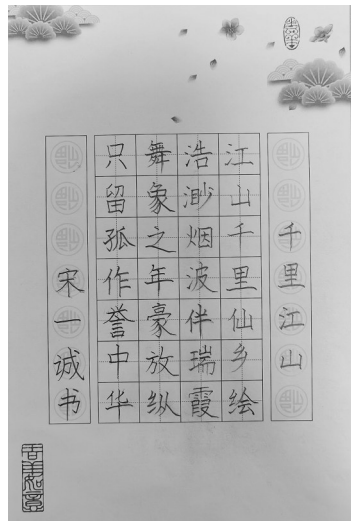 千里江山
江山千里仙乡绘
浩渺烟波伴瑞霞
舞象之年豪放纵
只留孤作誉中华
宋一诚书
吉美如意